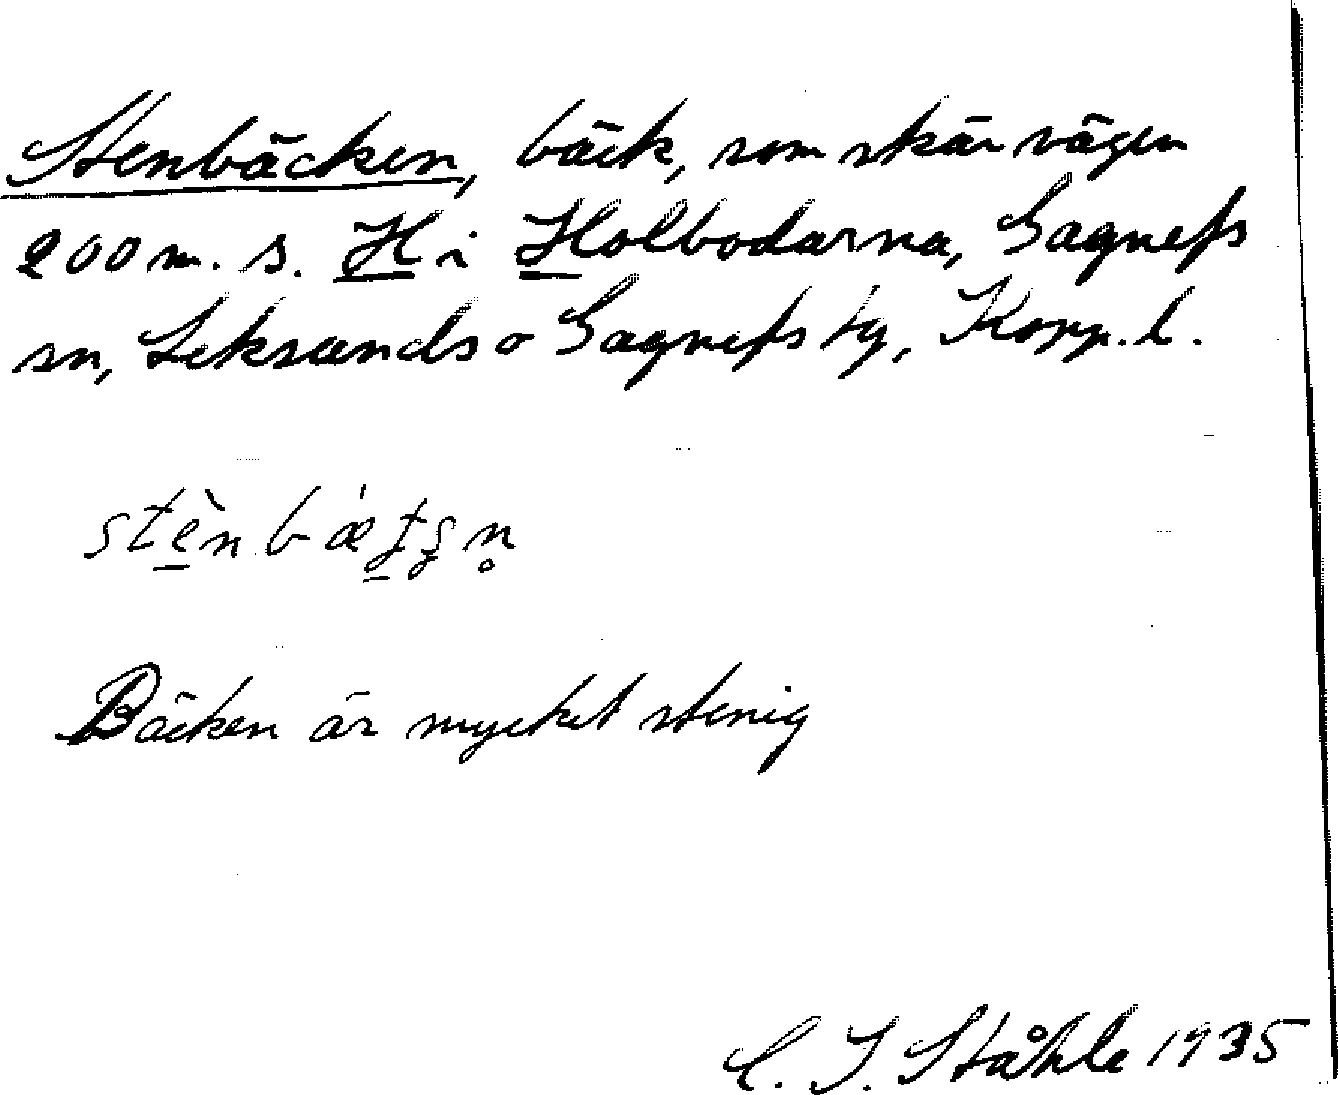 Stenbäcken, bäck, som skär vägen
200 m. s. H i Holbodarna, Gagnefs
sn, Leksands o Gagnefs tg, Kopp. l.
Bäcken är mycket stenig
C. I. Ståhle 1935